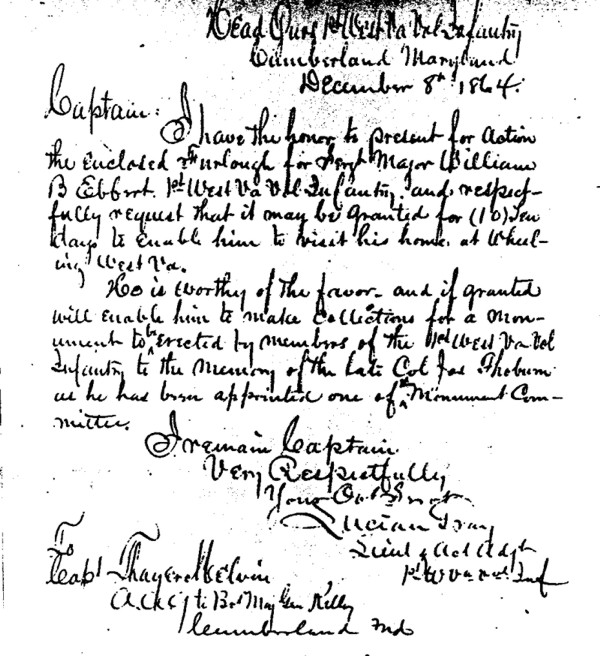 Head Qurs 1st West Va Vol Infantry
Cumberland Maryland
December 8th 1864.
Captain:
I have the honor to present for Action
the enclosed Furlough for Sergt Major William
B Ebbert. 1st West Va Vol Infantry. and respect-
fully request that it may be granted for (10) Ten
days to enable him to visit his home, at Wheel-
ing West Va.
He is worthy of the favor- and if granted
will enable him to make Collections for a Mon-
ument to be erected by members of the 1st West Va Vol
Infantry to the memory of the late Col Jos Thoburn
as he has been appointed one of the Monument Com-
mittee.
I remain Captain
Very Respectfully
Your Obt Servt
Lucian Gray
Lieut & Act Adjt
1st W Va Vol Inf
To
Capt Thayer Melvin
A.A.G. to Bvt Maj Gen Kelley
Cumberland Md